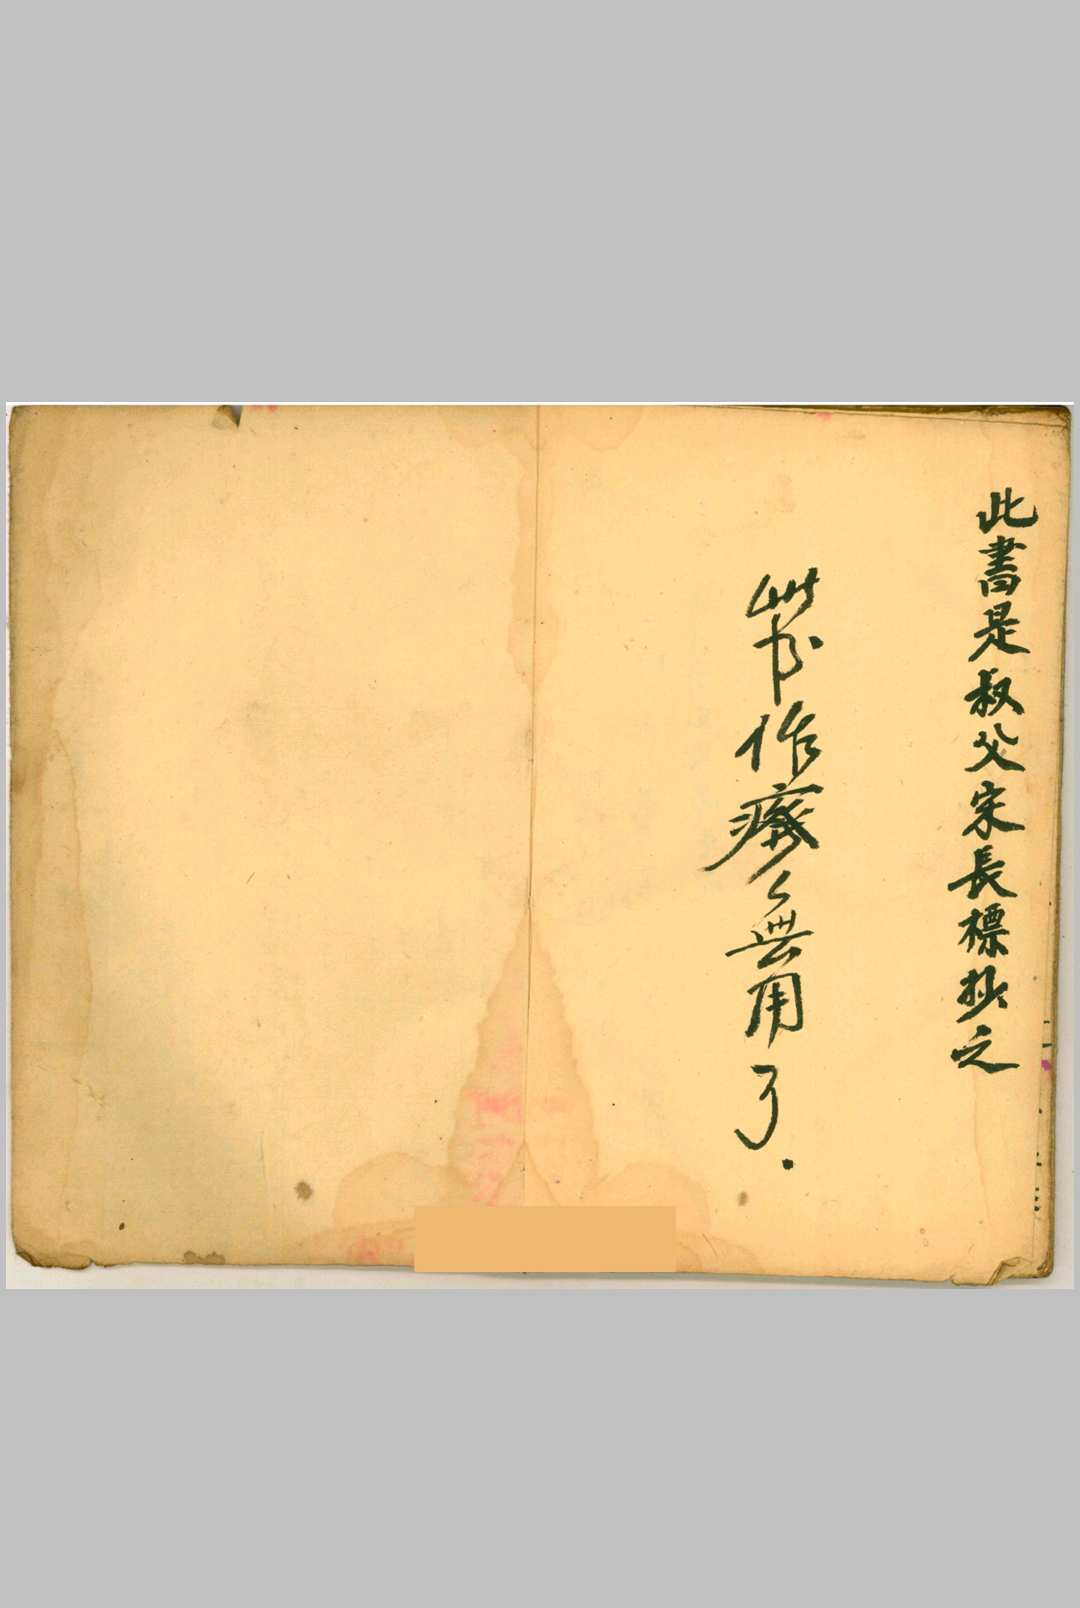 此書是叔父宋長標抄之
此书作廢無用了.